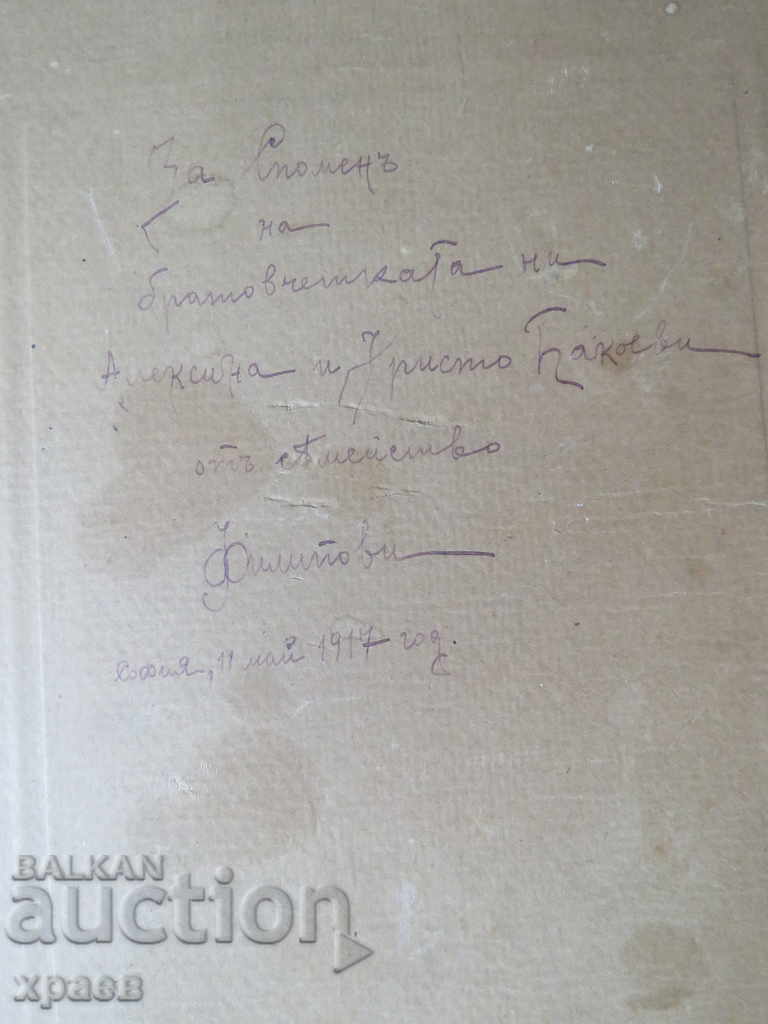 За Споменъ
на
братовчетката ни
Алексина и Христо Бакоеви
отъ сѣмейство
Филипови
София, 11 май 1917 год.
BALKAN
auction
храев